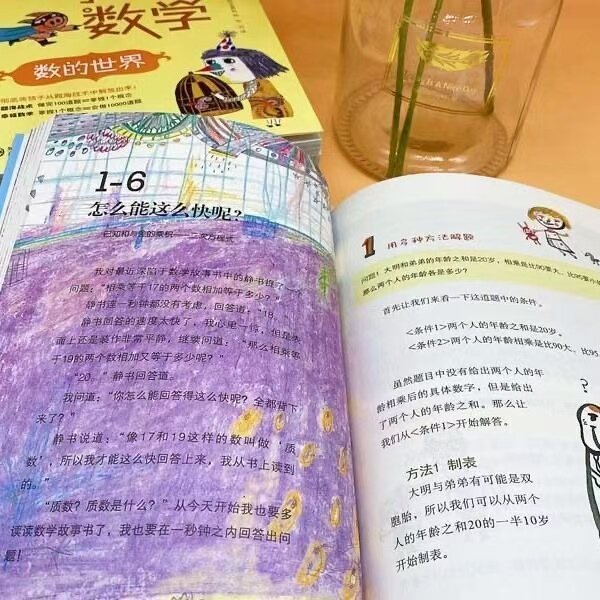 数学
数的世界
1-6
怎么能这么快呢?
我对最近深陷于数学故事书中的静书提了一个
问题:“相乘等于17的两个数相加等于多少?”
静书连一秒钟都没有考虑,回答道:“18。”
静书回答的速度太快了,我心里一惊,但是表
面上还是装作非常平静,继续问道:“那么相乘等
于19的两个数相加又等于多少呢?”
“20。”静书回答道。
我问道:“你怎么能回答得这么快呢?全都背下
来了?”
静书说道:“像17和19这样的数叫做‘质
数’,所以我才能这么快回答上来,我从书上读到
的。”
“质数?质数是什么?”从今天开始我也要多
读读数学故事书了,我也要在一秒钟之内回答出问
题!
1 用多种方法解题
问题1.大明和弟弟的年龄之和是20岁,相乘是比90要大、比95要小
那么两个人的年龄各是多少?
首先让我们来看一下这道题中的条件。
<条件1>两个人的年龄之和是20岁。
<条件2>两个人的年龄相乘是比90大、比95
虽然题目中没有给出两个人的年
龄相乘后的具体数字,但是给出
了两个人的年龄之和。那么让
我们从<条件1>开始解答。
?
方法1 制表
大明与弟弟有可能是双
胞胎,所以我们可以从两个
人的年龄之和20的一半10岁
开始制表。